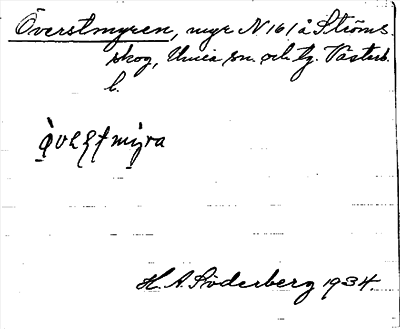 Överstmyren, myr N 161 å Ströms-
skog, Umeå sn. och tg. Västerb.
l.
H. A. Söderberg 1934.